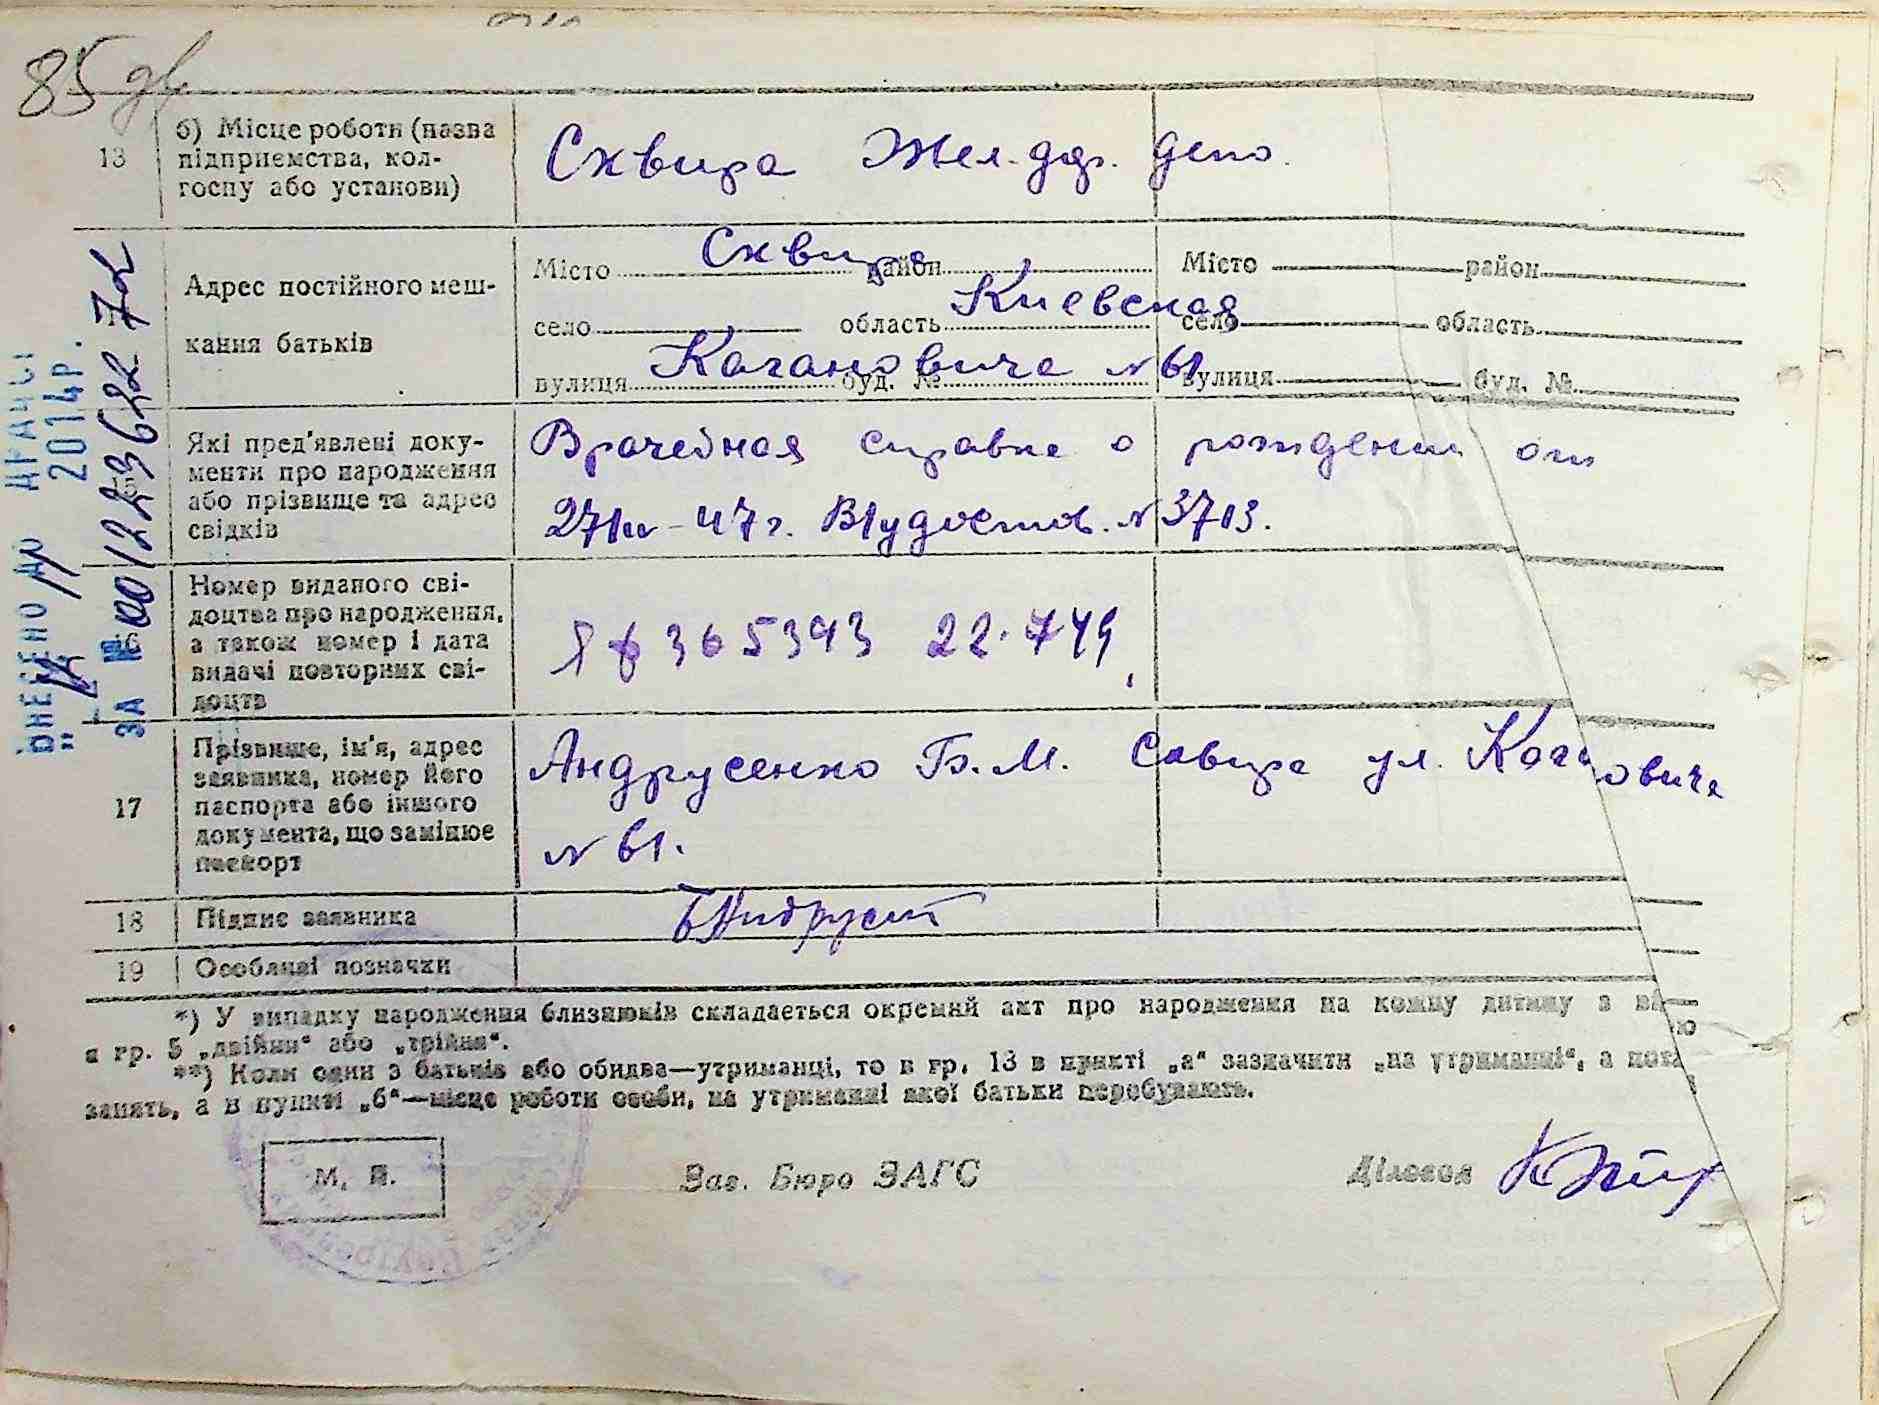 85
13
б) Місце роботи (назва
підприємства, кол-
госпу або установи)
Сквира Жел. дор. депо.
Адрес постійного меш-
кання батьків
Місто Сквира район
село область Киевская
вулиця Кагановича буд. № N 61
Місто район
село область
вулиця буд. №
Які пред'явлені доку-
менти про народження
або прізвище та адрес
свідків
Врачебная справка о рождении от
47 г. N 3713.
16
Номер виданого сві-
доцтва про народження,
а також номер і дата
видачі повторних сві-
доцтв
365393 22.749
17
Прізвище, ім'я, адрес
заявника, номер його
паспорта або іншого
документа, що замінює
паспорт
Андрусенко Б. М. Сквира ул. Кагановича
N 61.
18
Підпис заявника
19
Особливі позначки
*) У випадку народження близнюків складається окремий акт про народження на кожну дитину з
в гр. 5 „двійня“ або „трійня“.
**) Коли один з батьків або обидва—утриманці, то в гр. 13 в пункті „а“ зазначити „на утриманні“, а
занять, а в пункті „б“—місце роботи особи, на утриманні якої батьки перебувають.
М. П.
Зав. Бюро ЗАГС
Діловод
ВНЕСЕНО ДО ДРАЦСГ
2014Р.
ЗА № 00122362272